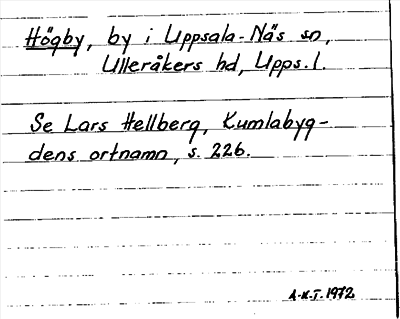 Högby, by i Uppsala-Näs sn,
Ulleråkers hd, Upps. l.
Se Lars Hellberg, Kumlabyg-
dens ortnamn, s. 226.
A-K.T. 1972